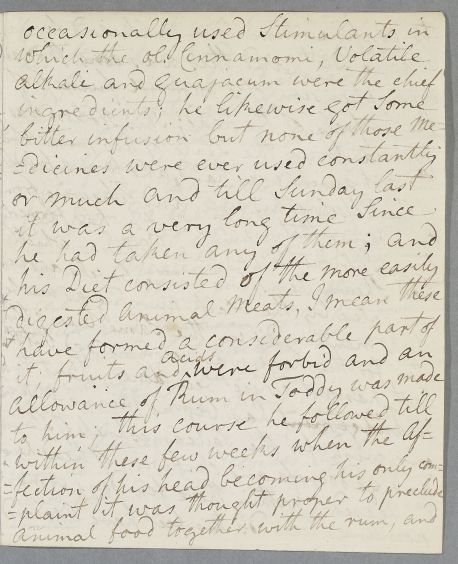 occasionally used Stimulants in
which the ol: Cinnamomi, Volatile
alkali and guajacum were the chief
ingredients; he likewise got some
bitter infusion but none of those Me=
=dicines were ever used constantly
or much and till Sunday last
it was a very long time since
he had taken any of them; and
his Diet consisted of the more easily
digested animal Meats, I mean these
have formed a considerable part of
it, fruits and acids were forbid and an
allowance of Rum in Toddy was made
to him; this course he followed till
within these few weeks when the Af=
=fection of his head becoming his only com=
=plaint it was thought proper to preclude
animal food together with the rum, and